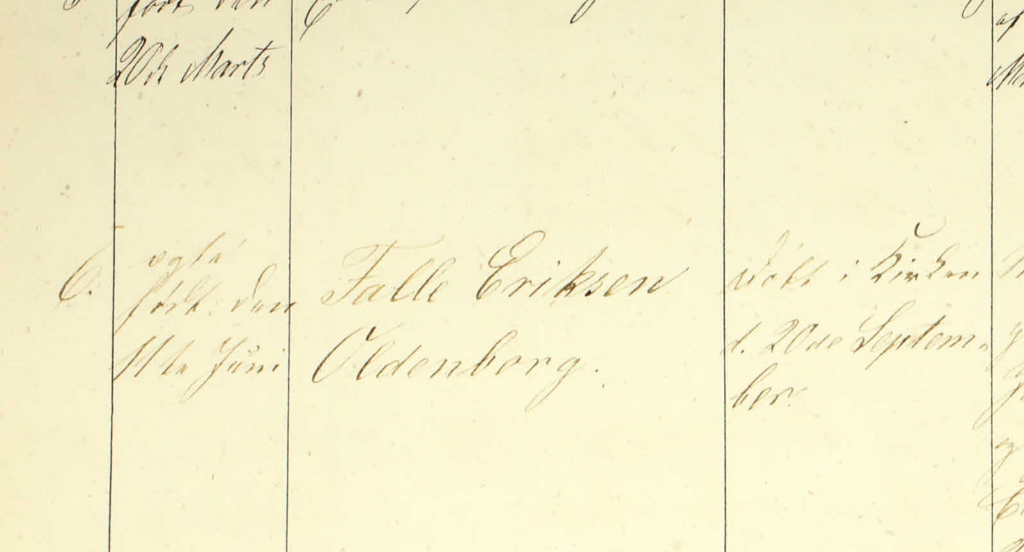 født den
20de Marts
6.
ægte
født den
11te Juni
Falle Eriksen
Oldenborg.
Døbt i Kirken
d. 20de Septem-
ber.